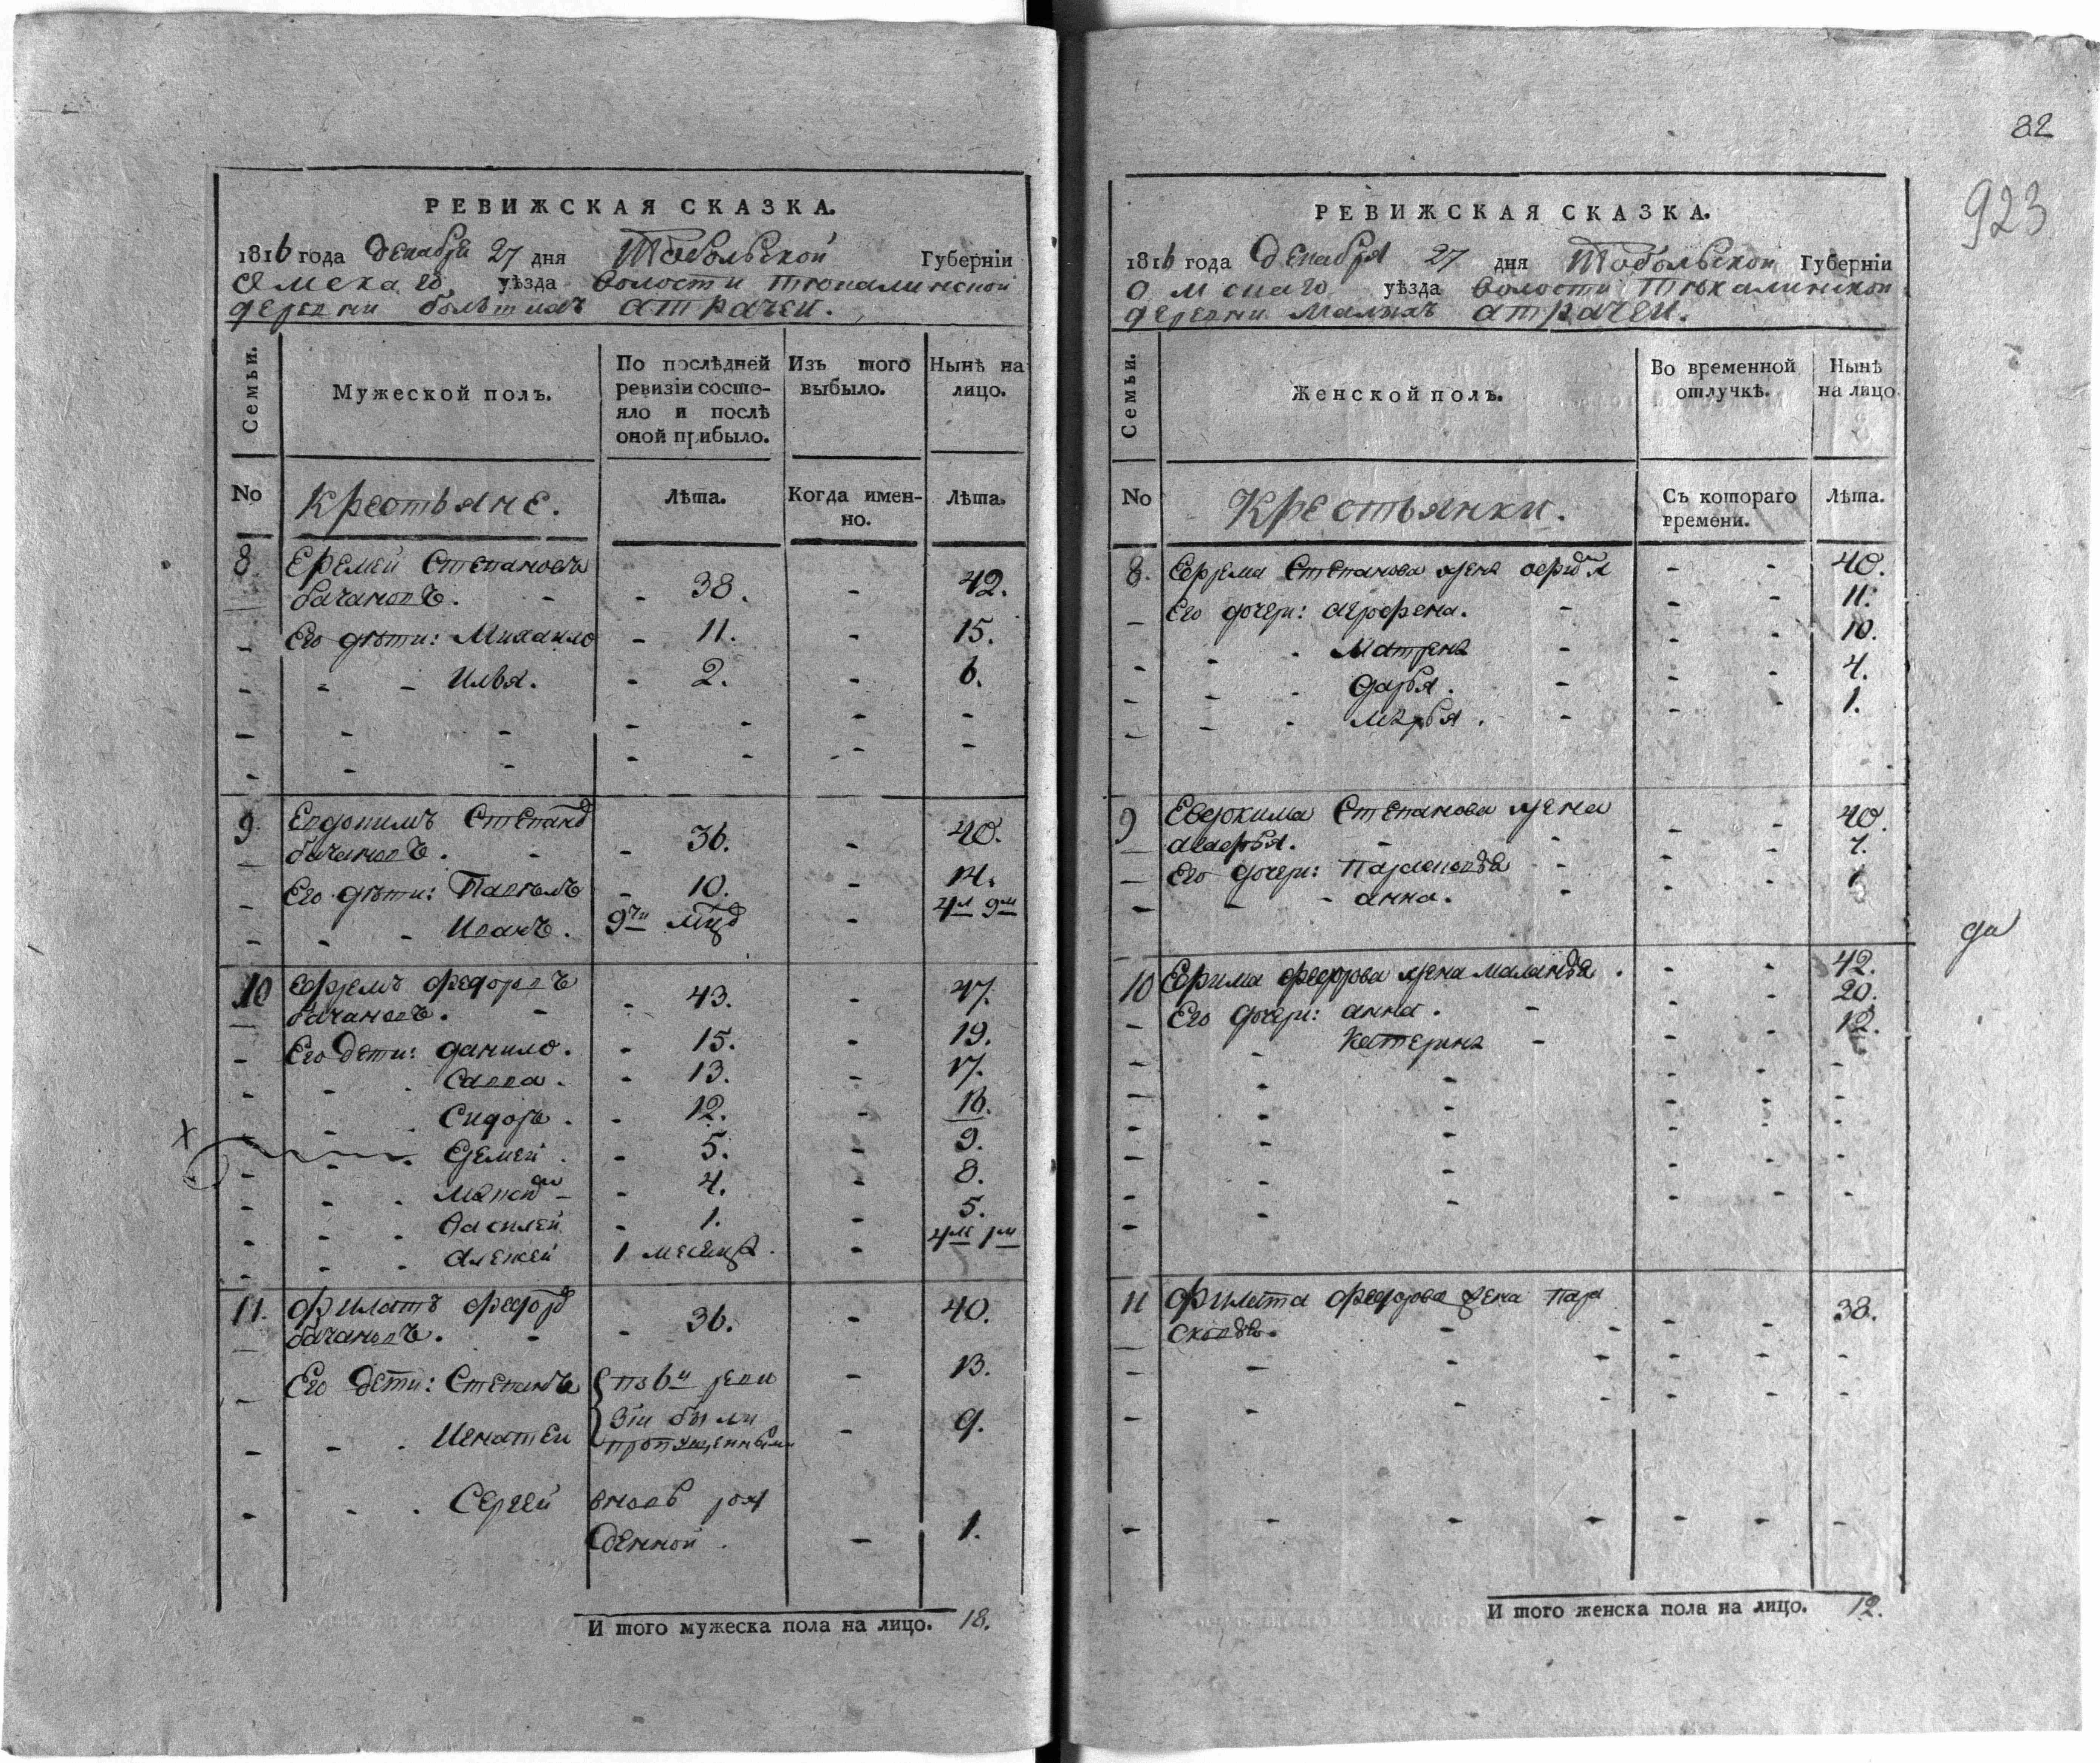 82
923
РЕВИЖСКАЯ СКАЗКА.
1816 года Декабря 27 дня Тобольской Губернїи
Омскаго уѣзда волости Тюкалинской
деревни большихъ атрачеи.
Семьи.
Мужеской полъ.
По послѣдней ревизїи состояло и послѣ оной прибыло.
Изъ того выбыло.
Нынѣ на лицо.
No крестьяне. Лѣта. Когда именно. Лѣта.
8. Еремей Степановъ
бачановъ. - - 38. - 42.
Его дѣти: Михаило - 11. - 15.
- - Илья. - 2. - 6.
9. Евдокимъ Степано
бачановъ. - - 36. - 40.
Его дѣти: Павелъ - 10. - 14.
- - Иванъ. 9ти мцо - 4л 9м
10 Ефремъ федоровъ
бачановъ. - - 43. - 47.
Его дети: данило. - 15. - 19.
- - Савва. - 13. - 17.
- - Сидоръ. - 12. - 16.
х - - Еремей. - 5. - 9.
- - - 4. - 8.
- - василей - 1. - 5.
- - алексей 1 месеца. - 4л 1м
11. филатъ федоро
бачановъ. - - 36. - 40.
Его дети: Степанъ по 6й реви - 13.
- - Игнатеи зїи были - 9.
пропущенными
- - Сергей вновь рож
денной. - 1.
И того мужеска пола на лицо. 18.
РЕВИЖСКАЯ СКАЗКА.
1816 года Декабря 27 дня Тобольской Губернїи
Омскаго уѣзда волости Тюкалинской
деревни Малыхъ атрачеи.
Семьи.
Женской полъ.
Во временной отлучкѣ.
Нынѣ на лицо
No Крестьянки. Съ котораго времени. Лѣта.
8. Еремеа Степанова жена - - 40.
Его дочери: агрофена. - - - 11.
- - Матрена - - - 10.
- - дарья. - - - 4.
- - марья. - - - 1.
9 Евдокима Степанова жена - - 40.
Его дочери: Парасковья - - - 7.
- - анна. - - - 1
да
10 Ефрима федорова жена маланья. - - 42.
Его дочери: анна. - - - 20.
- Катерина - - - 12.
11 Филата федорова жена пара 38.
сковья. - - - -
И того женска пола на лицо. 12.